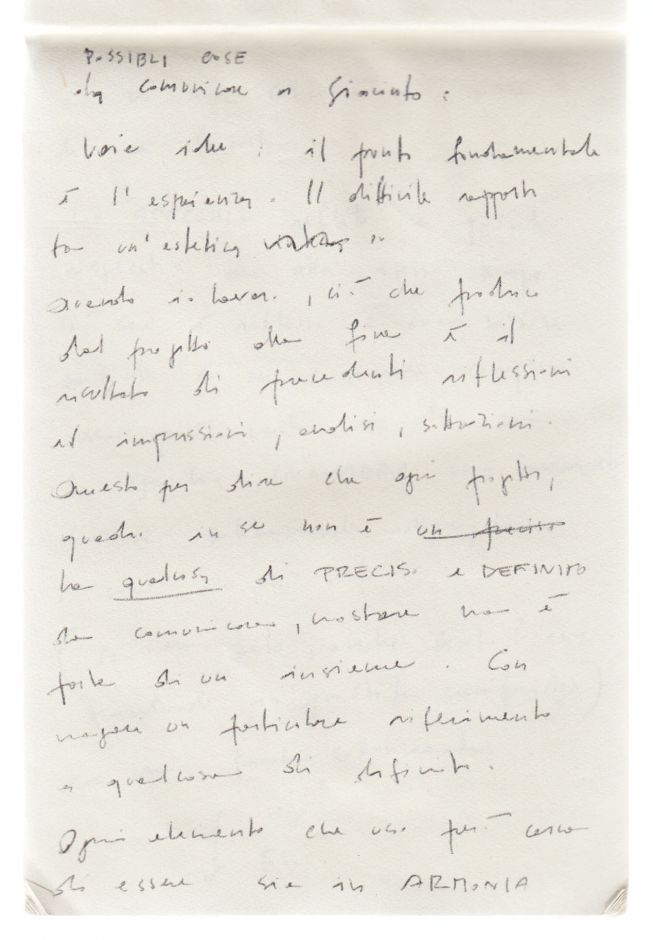 POSSIBLI COSE
da comunicare a Giacinto :
Varie idee : il punto fondamentale
è l'esperienza. Il difficile rapporto
tra un'estetica
Quando io lavoro, ciò che produco
dal progetto alla fine è il
risultato di precedenti riflessioni
ed impressioni, analisi, situazioni.
Questo per dire che ogni progetto,
quadro in se non è un preciso
ha qualcosa di PRECISO e DEFINITO
da comunicare, mostrare ma è
parte di un insieme. Con
magari un particolare riferimento
a qualcosa di definito.
Ogni elemento che uso però cerca
di essere sia in ARMONIA